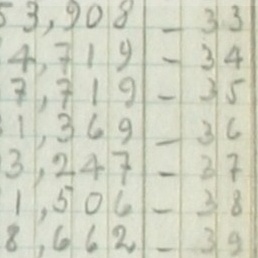 53,908 – 33
4,719 – 34
7,719 – 35
1,369 – 36
3,247 – 37
1,506 – 38
8,662 – 39